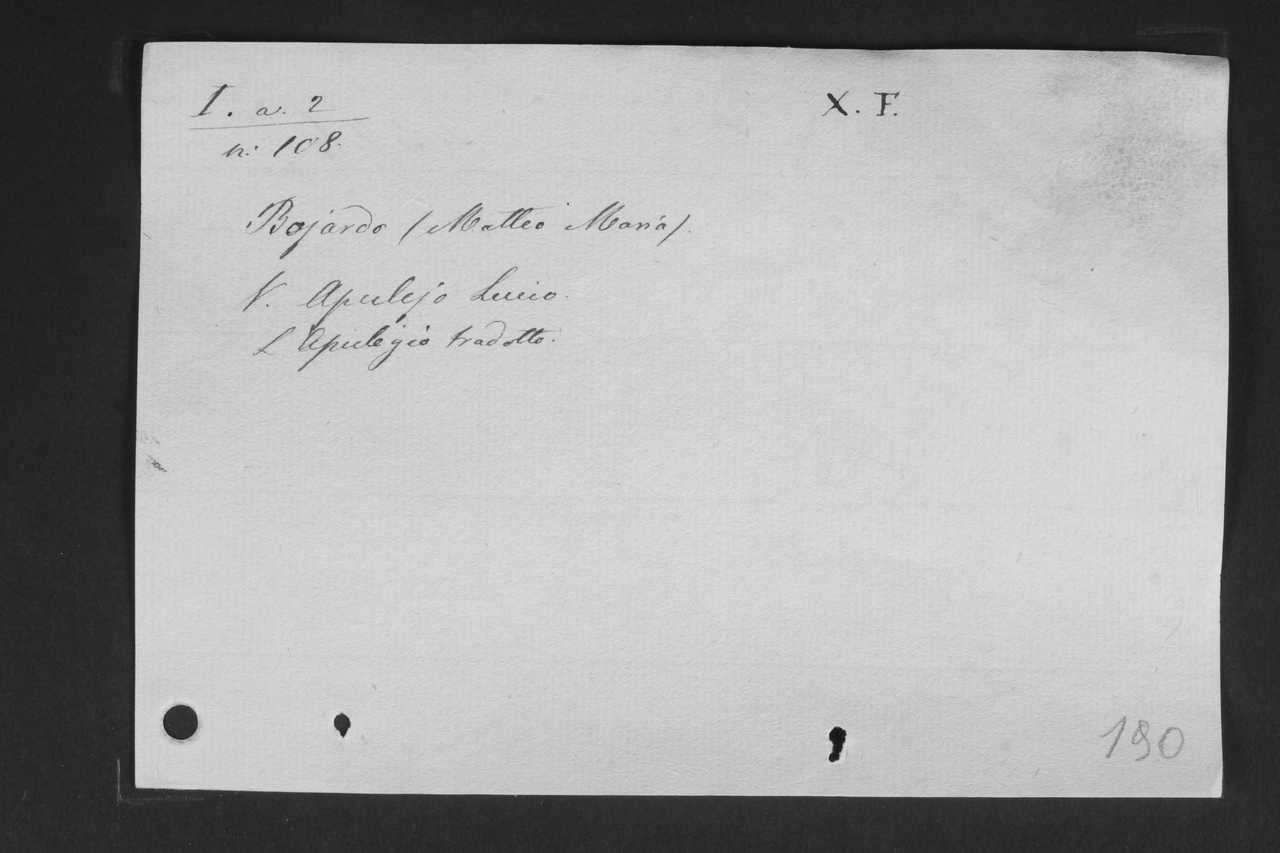 I. a. 2
X. F.
n: 108.
Bojardo (Matteo Maria).
V. Apulejo Lucio.
L'Apulegio tradotto.
190